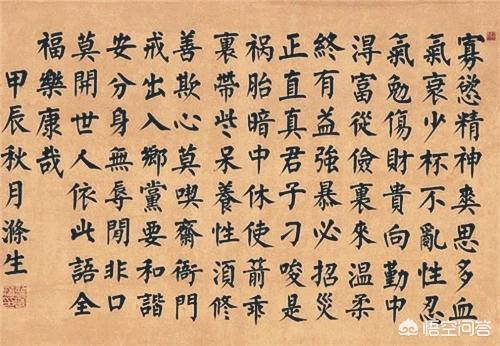 寡慾精神爽思多血
氣衰少杯不亂性忍
氣勉傷財貴向勤中
淂富從儉裏來温柔
終有益強暴必招災
正直真君子刁唆是
祸胎暗中休使箭乖
裏帶些呆養性須修
善欺心莫喫齋衙門
戒出入鄉黨要和諧
安分身無辱閒非口
莫開世人依此語全
福樂康哉
甲辰秋月滌生
悟空问答